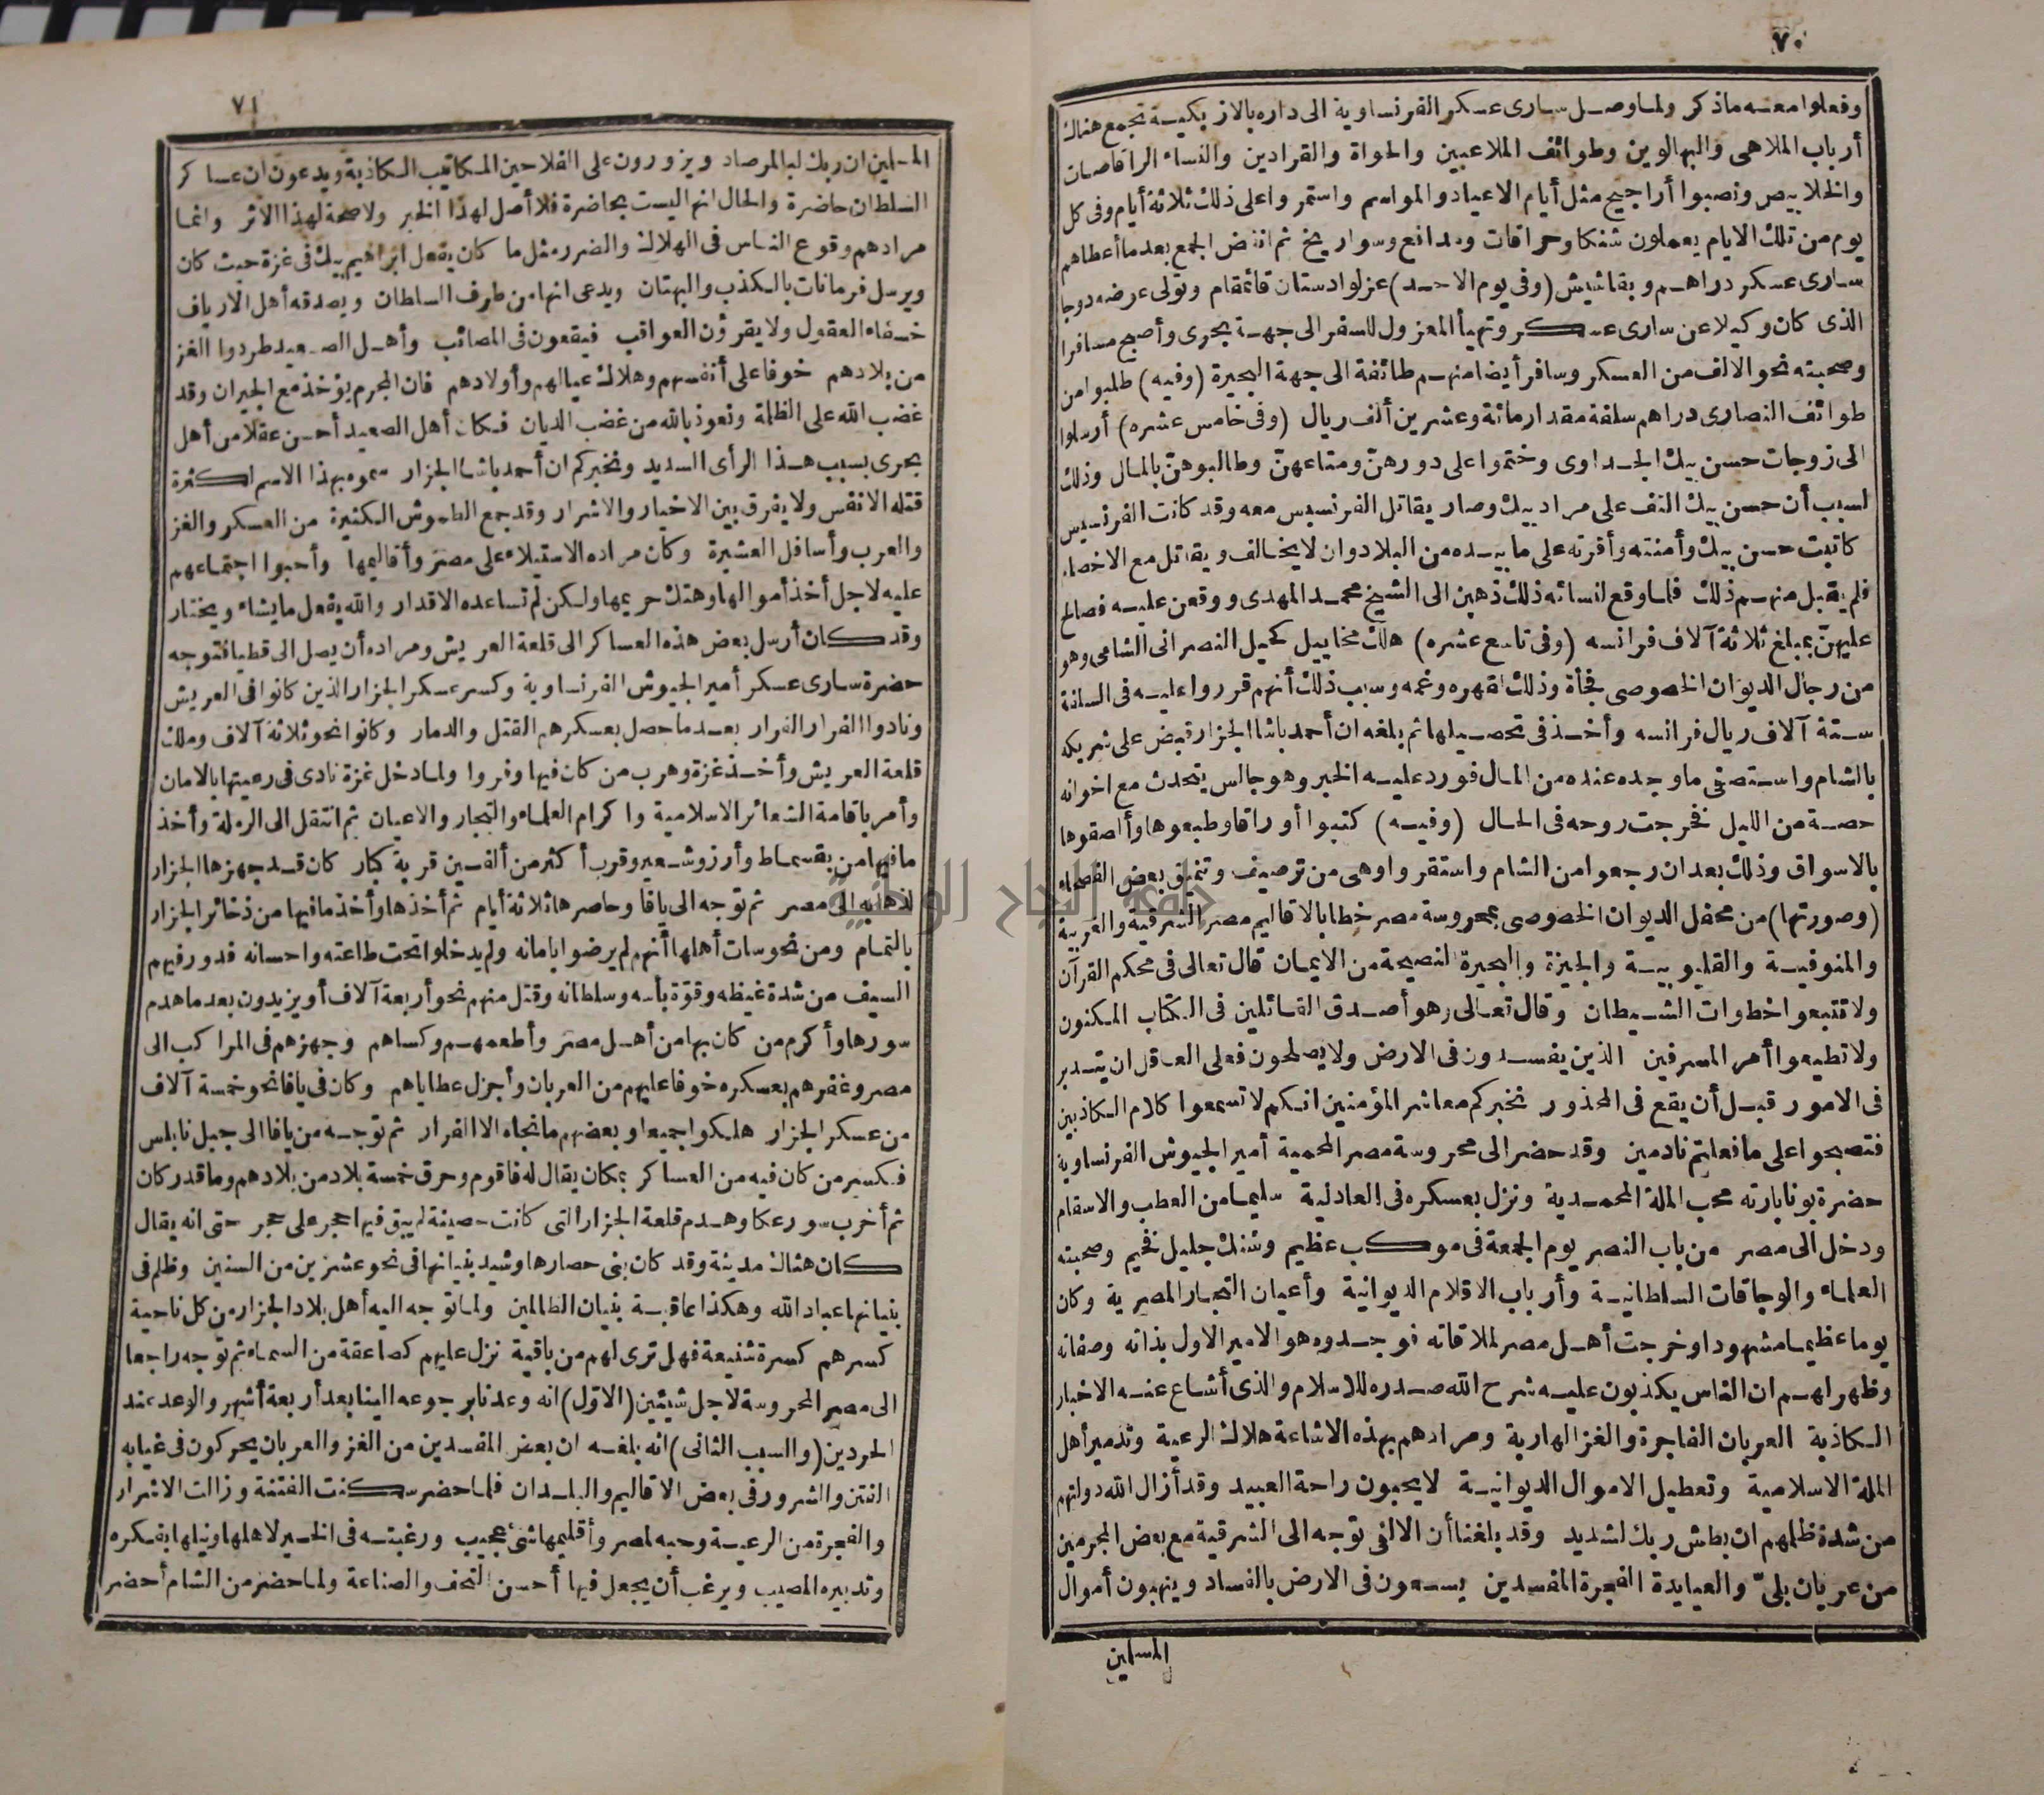 ٧٠
وفعلوا معه ماذكر ولما وصل سارى عسكر الفرنساوية الى داره بالازبكية تجمع هناك
أرباب الملاهى والبهالوين وطوائف الملاعبين والحواة والقرادين والنساء الراقصات
والخلابيص ونصبوا أراجيح مثل أيام الاعياد والمواسم واستمروا على ذلك ثلاثة أيام وفى كل
يوم من تلك الايام يعملون شنكا وحراقات ومدافع وسواريخ ثم انفض الجمع بعد ما أعطاهم
سارى عسكر دراهم وبقاشيش (وفى يوم الاحد) عزلوا دستان قائمقام وتولى عوضه دوجا
الذى كان وكيلا عن سارى عسكر وتهيأ المعزول للسفر الى جهة بحرى وأصبح مسافرا
وصحبته نحو الالف من العسكر وسافر أيضا منهم طائفة الى جهة البحيرة (وفيه) طلبوا من
طوائف النصارى دراهم سلفة مقدار مائة وعشرين ألف ريال (وفى خامس عشره) أرسلوا
الى زوجات حسن بيك الجداوى وختموا على دورهن ومتاعهن وطالبوهن بالمال وذلك
لسبب أن حسن بيك التف على مراد بيك وصار يقاتل الفرنسيس معه وقد كانت الفرنسيس
كاتبت حسن بيك وأمنته وأقرته على ما بيده من البلاد وان لا يخالف ويقاتل مع الاخصام
فلم يقبل منهم ذلك فلما وقع لنسائه ذلك ذهبن الى الشيخ محمد المهدى ووقعن عليه فصالح
عليهن بمبلغ ثلاثة آلاف فرانسه (وفى تاسع عشره) هلك مخاييل كحيل النصرانى الشامى وهو
من رجال الديوان الخصوصى فجأة وذلك لقهره وغمه وسبب ذلك أنهم قرروا عليه فى السلفة
ستة آلاف ريال فرانسه وأخذ فى تحصيلها ثم بلغه ان أحمد باشا الجزار قبض على شريكه
بالشام واستصفى ما وجده عنده من المال فورد عليه الخبر وهو جالس يتحدث مع اخوانه
حصة من الليل فخرجت روحه فى الحال (وفيه) كتبوا أوراقا وطبعوها وألصقوها
بالاسواق وذلك بعد ان رجعوا من الشام واستقروا وهى من ترصيف وتنميق بعض الفصحاء
(وصورتها) من محفل الديوان الخصوصى بمحروسة مصر خطابا لاقاليم مصر الشرقية والغربية
والمنوفية والقليوبية والجيزة والبحيرة النصيحة من الايمان قال تعالى فى محكم القرآن
ولا تتبعوا خطوات الشيطان وقال تعالى وهو أصدق القائلين فى الكتاب المكنون
ولا تطيعوا أمر المسرفين الذين يفسدون فى الارض ولا يصلحون فعلى العاقل ان يتدبر
فى الامور قبل أن يقع فى المحذور نخبركم معاشر المؤمنين انكم لا تسمعوا كلام الكاذبين
فتصبحوا على ما فعلتم نادمين وقد حضر الى محروسة مصر المحمية أمير الجيوش الفرنساوية
حضرة بونابارته محب الملة المحمدية ونزل بعسكره فى العادلية سليما من العطب والاسقام
ودخل الى مصر من باب النصر يوم الجمعة فى موكب عظيم وشنك جليل فخيم وصحبته
العلماء والوجاقات السلطانية وأرباب الاقلام الديوانية وأعيان التجار المصرية وكان
يوما عظيما مشهودا وخرجت أهل مصر لملاقاته فوجدوه هو الامير الاول بذاته وصفاته
وظهر لهم ان الناس يكذبون عليه شرح الله صدره للاسلام والذى أشاع عنه الاخبار
الكاذبة العربان الفاجرة والغز الهاربة ومرادهم بهذه الاشاعة هلاك الرعية وتدمير أهل
الملة الاسلامية وتعطيل الاموال الديوانية لا يحبون راحة العبيد وقد أزال الله دولتهم
من شدة ظلمهم ان بطش ربك لشديد وقد بلغنا أن الالفى توجه الى الشرقية مع بعض المجرمين
من عربان بلىّ والعيايدة الفجرة المفسدين يسعون فى الارض بالفساد وينهبون أموال
المسلمين
٧١
المسلمين ان ربك لبالمرصاد ويزورون على الفلاحين المكاتيب الكاذبة ويدعون ان عساكر
السلطان حاضرة والحال انها ليست بحاضرة فلا أصل لهذا الخبر ولا صحة لهذا الاثر وانما
مرادهم وقوع الناس فى الهلاك والضرر مثل ما كان يفعل ابراهيم بيك فى غزة حيث كان
ويرسل فرمانات بالكذب والبهتان ويدعى انها من طرف السلطان ويصدقه أهل الارياف
خسفاء العقول ولا يقرؤن العواقب فيقعون فى المصائب وأهل الصعيد طردوا الغز
من بلادهم خوفا على أنفسهم وهلاك عيالهم وأولادهم فان المجرم يؤخذ مع الجيران وقد
غضب الله على الظلمة ونعوذ بالله من غضب الديان فكان أهل الصعيد أحسن عقلا من أهل
بحرى بسبب هذا الرأى السديد ونخبركم ان أحمد باشا الجزار سموه بهذا الاسم لكثرة
قتله الانفس ولا يفرق بين الاخيار والاشرار وقد جمع الطموش الكثيرة من العسكر والغز
والعرب وأسافل العشيرة وكان مراده الاستيلاء على مصر وأقاليمها وأحبوا اجتماعهم
عليه لاجل أخذ أموالها وهتك حريمها ولكن لم تساعده الاقدار والله يفعل ما يشاء ويختار
وقد كان أرسل بعض هذه العساكر الى قلعة العريش ومراده أن يصل الى قطيا فتوجه
حضرة سارى عسكر أمير الجيوش الفرنساوية وكسر عسكر الجزار الذين كانوا فى العريش
ونادوا الفرار الفرار بعد ما حصل بعسكرهم القتل والدمار وكانوا نحو ثلاثة آلاف وملك
قلعة العريش وأخذ غزة وهرب من كان فيها وفروا ولما دخل غزة نادى فى رعيتها بالامان
وأمر باقامة الشعائر الاسلامية واكرام العلماء والتجار والاعيان ثم انتقل الى الرملة وأخذ
ما فيها من بقسماط وأرز وشعير وقرب أكثر من ألفين قربة كبار كان قد جهزها الجزار
لذهابه الى مصر ثم توجه الى يافا وحاصرها ثلاثة أيام ثم أخذها وأخذ ما فيها من ذخائر الجزار
بالتمام ومن نحوسات أهلها أنهم لم يرضوا بامانه ولم يدخلوا تحت طاعته واحسانه فدور فيهم
السيف من شدة غيظه وقوّة بأسه وسلطانه وقتل منهم نحو أربعة آلاف أو يزيدون بعد ما هدم
سورها وأكرم من كان بها من أهل مصر وأطعمهم وكساهم وجهزهم فى المراكب الى
مصر وغفرهم بعسكره خوفا عليهم من العربان وأجزل عطاياهم وكان فى يافا نحو خمسة آلاف
من عسكر الجزار هلكوا جميعا وبعضهم ما نجاه الا الفرار ثم توجه من يافا الى جبل نابلس
فكسر من كان فيه من العساكر بمكان يقال له فاقوم وحرق خمسة بلاد من بلادهم وما قدر كان
ثم أخرب سور عكا وهدم قلعة الجزار التى كانت حصينة لم يبق فيها حجر على حجر حتى انه يقال
كان هناك مدينة وقد كان بنى حصارها وشيد بنيانها فى نحو عشرين من السنين وظلم فى
بنيانها عباد الله وهكذا عاقبة بنيان الظالمين ولما توجه اليه أهل بلاد الجزار من كل ناحية
كسرهم كسرة شنيعة فهل ترى لهم من باقية نزل عليهم كصاعقة من السماء ثم توجه راجعا
الى مصر المحروسة لاجل شيئين (الاوّل) انه وعدنا برجوعه الينا بعد أربعة أشهر والوعد عند
الحر دين (والسبب الثانى) انه بلغه ان بعض المفسدين من الغز والعربان يحركون فى غيابه
الفتن والشرور فى بعض الاقاليم والبلدان فلما حضر سكنت الفتنة وزالت الاشرار
والفجرة من الرعية وحبه لمصر وأقليمها شئ عجيب ورغبته فى الخير لاهلها ونيلها بفكره
وتدبيره المصيب ويرغب أن يجعل فيها أحسن التحف والصناعة ولما حضر من الشام أحضر